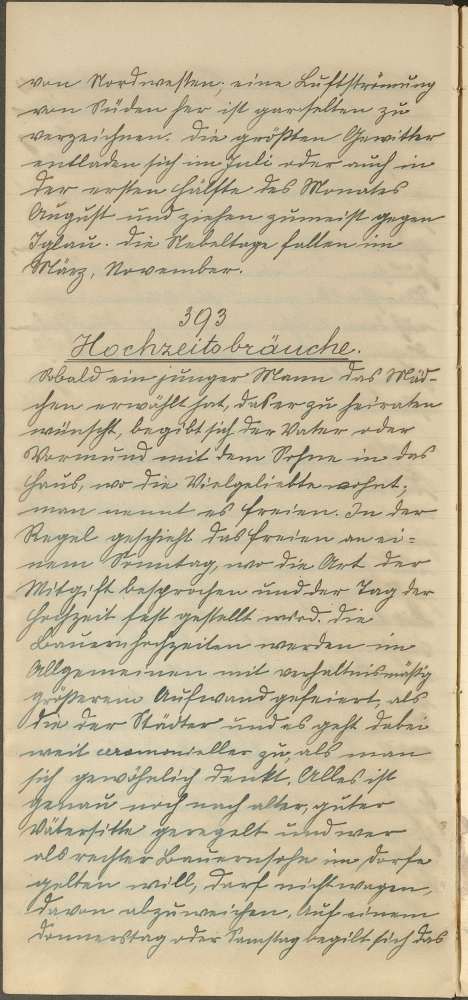 von Nordwesten; eine Luftströmung
von Süden her ist gar selten zu
verzeichnen. Die größten Gewitter
entladen sich im Juli oder auch in
der ersten Hälfte des Monates
August und ziehen zumeist gegen
Iglau. Die Nebeltage fallen im
März, November.
393
Hochzeitsbräuche.
Sobald ein junger Mann das Mäd-
chen erwählt hat, das er zu heiraten
wünscht, begibt sich der Vater oder
Vormund mit dem Sohne in das
Haus, wo die Vielgeliebte wohnt;
man nennt es freien. In der
Regel geschieht das freien an ei=
nem Sonntag, wo die Art der
Mitgift besprochen und der Tag der
Hochzeit fest gestellt wird. Die
Bauernhochzeiten werden im
Allgemeinen mit verhältnismäßig
größerem Aufwand gefeiert, als
die der Städter und es geht dabei
weit ceremonieller zu, als man
sich gewöhnlich denkt. Alles ist
genau noch nach alter, guter
Vätersitte geregelt und wer
als rechter Bauernsohn im Dorfe
gelten will, darf nicht wagen,
davon abzuweichen. Auf einem
Donnerstag oder Samstag begibt sich das